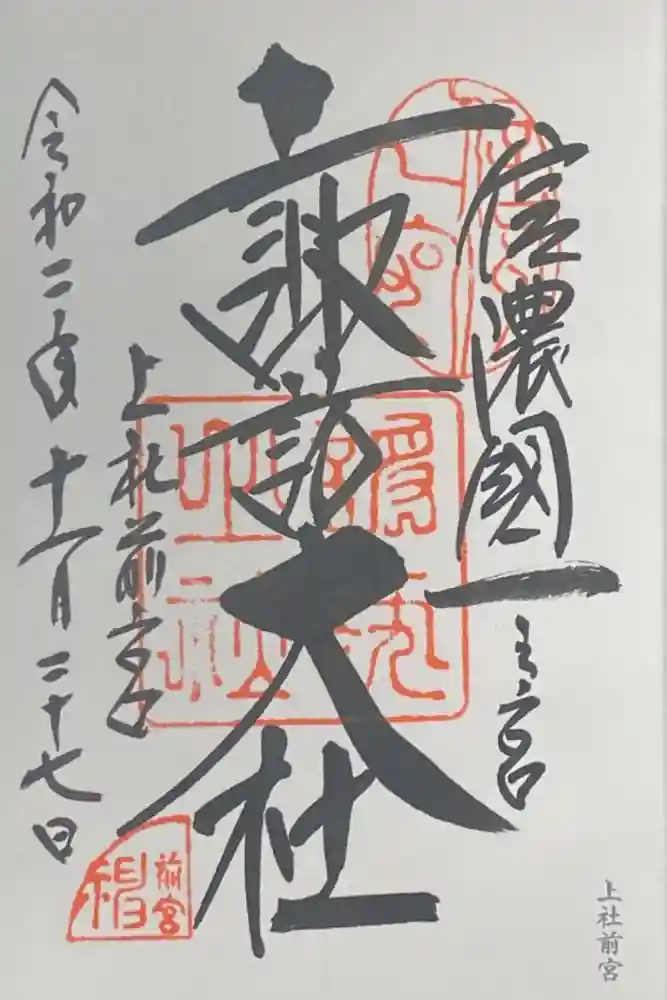 信濃國一之宮
諏訪大社
上社前宮
令和二年十一月二十七日
前宮
上社前宮